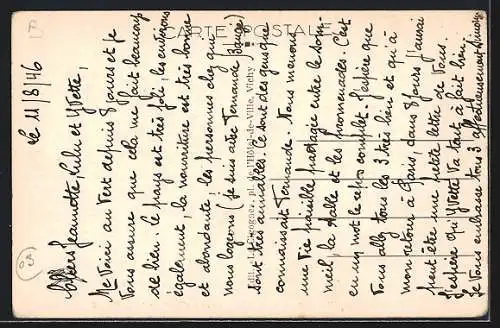 CARTE POSTALE
le 11/8/46
Chères Jeannette, Lulu et Yvette,
Me voici au vert depuis 8 jours et je
vous assure que cela me fait beaucoup
de bien. Le pays est très joli les environs
également, la nourriture est très bonne
et abondante les personnes chez qui
nous logeons (je suis avec Fernande)
sont très aimables. Ce sont des gens que
connaissait Fernande. Nous menons
une vie paisible partagée entre le som-
meil, la table et les promenades. C'est
en un mot le repos complet. J'espère que
vous allez tous les 3 très bien et qu'à
mon retour à Paris, dans 8 jours j'aurai
peut être une petite lettre de vous.
J'espère qu'Yvette va tout à fait bien.
Je vous embrasse tous 3 affectueusement
pl. de l'Hôtel-de-Ville, Vichy